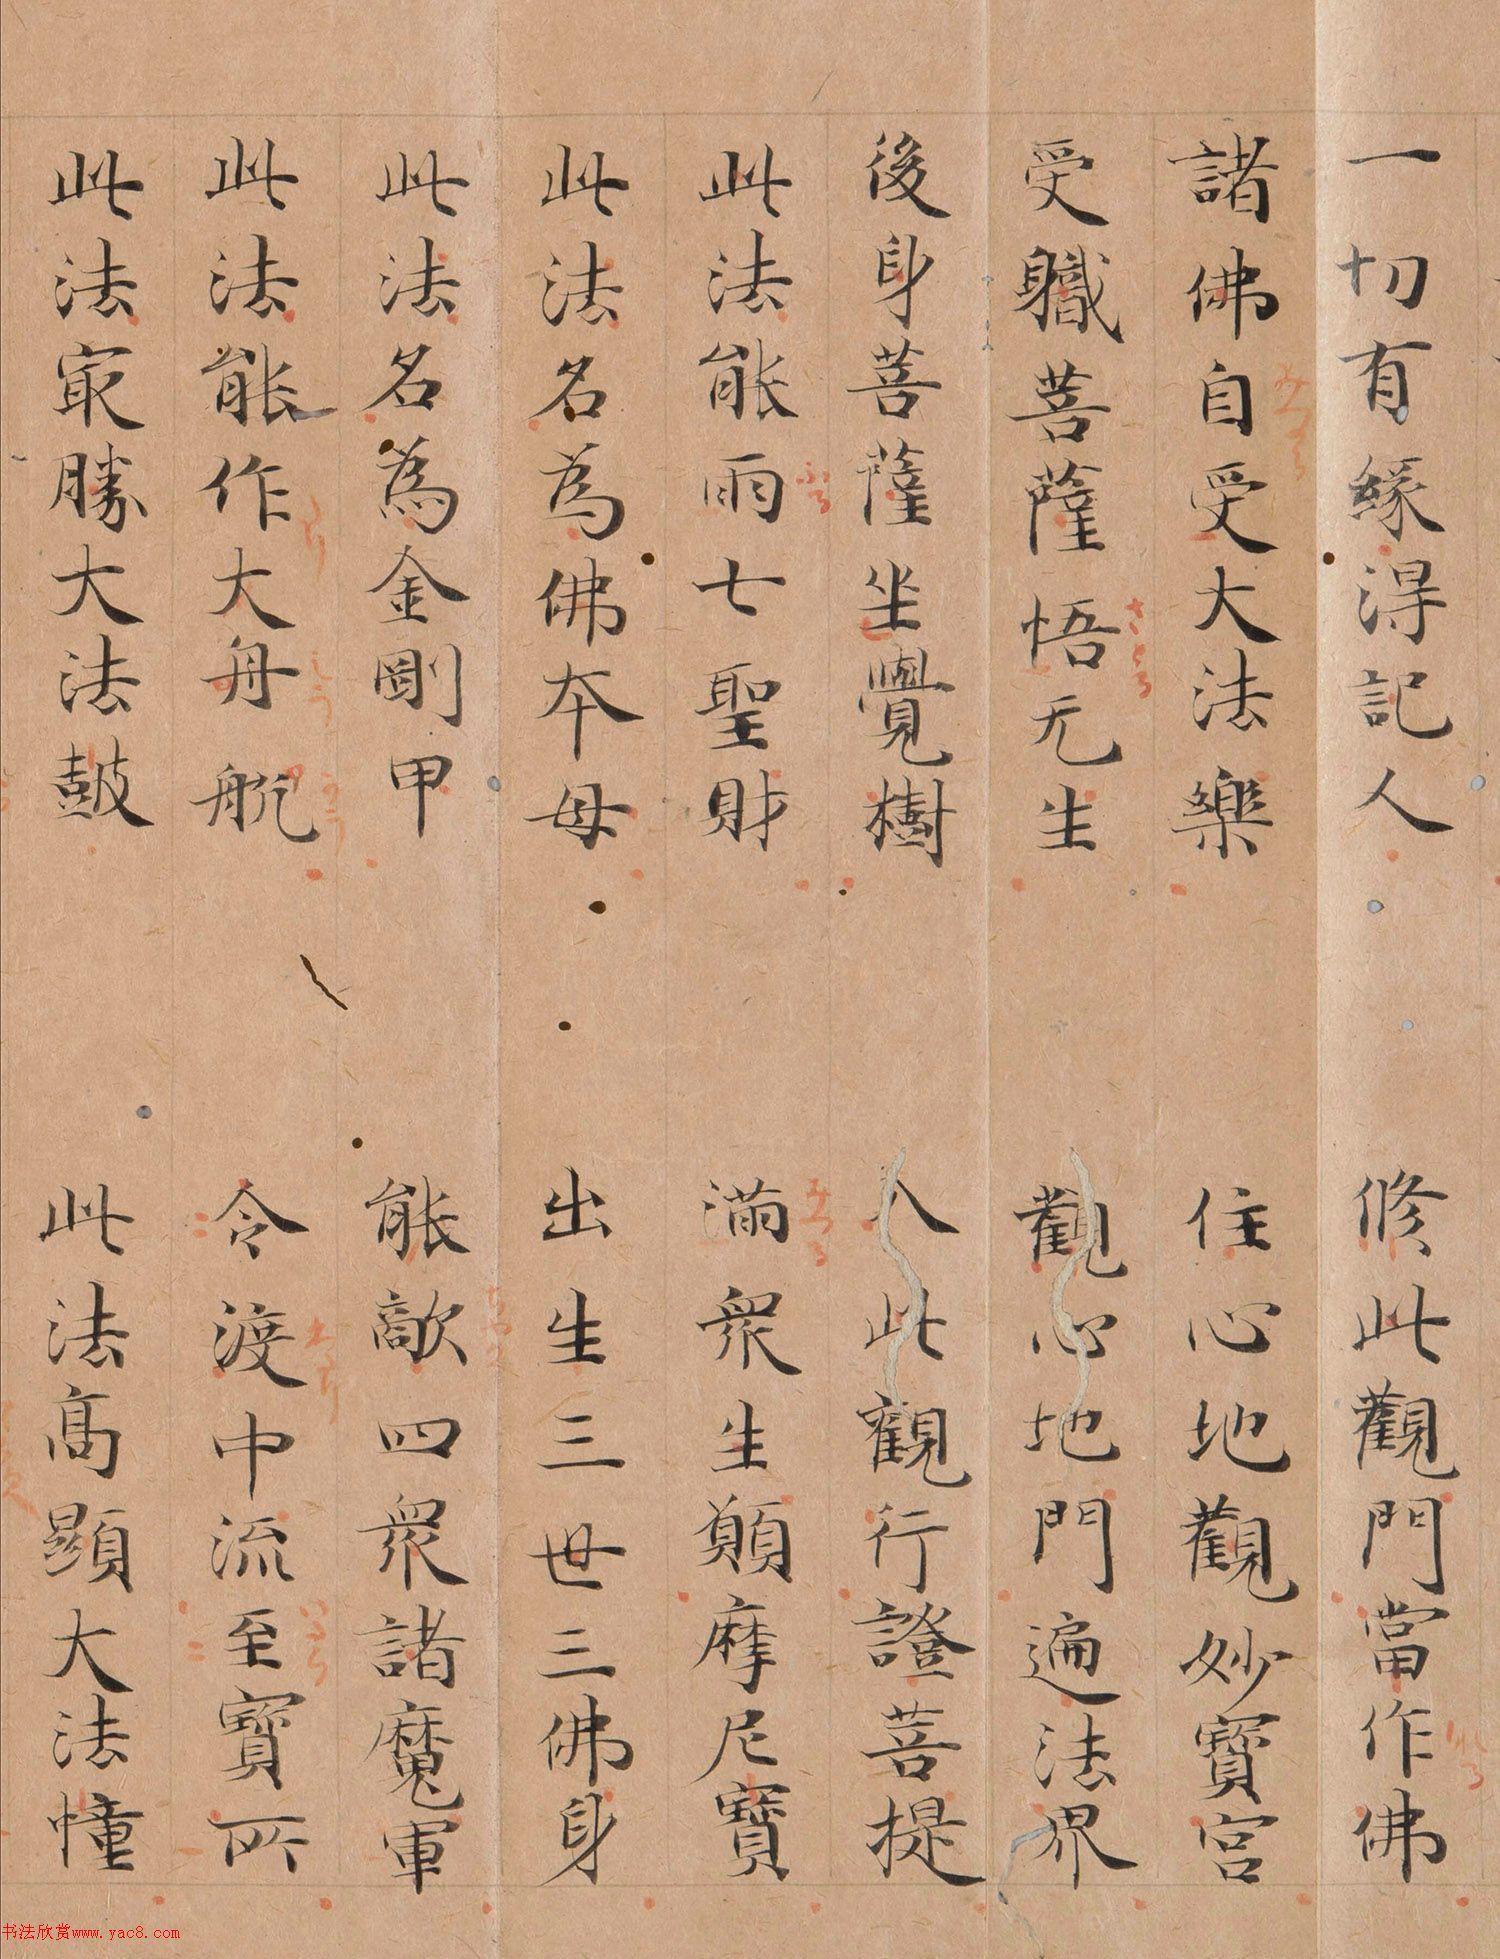 一切有緣得記人　修此觀門當作佛
諸佛自受大法樂　住心地觀妙寶宮
受職菩薩悟无生　觀心地門遍法界
後身菩薩坐覺樹　入此觀行證菩提
此法能雨七聖財　滿衆生願摩尼寶
此法名為佛本母　出生三世三佛身
此法名為金剛甲　能敵四衆諸魔軍
此法能作大舟舩　令渡中流至寶所
此法㝡勝大法鼓　此法高顯大法幢
书法欣赏www.yac8.com